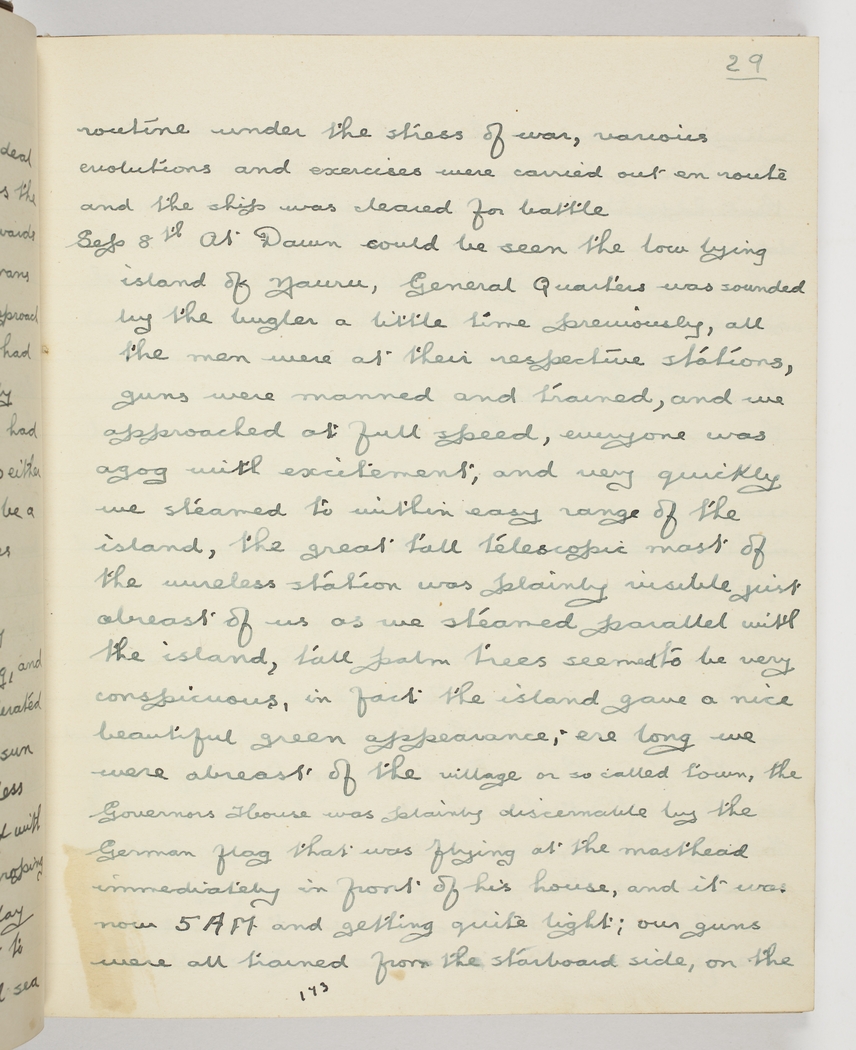 29
routine under the stress of war, various
evolutions and exercises were carried out en route
and the ship was cleared for battle
Sep 8th At Dawn could be seen the low lying
island of Nauru, General Quarters was sounded
by the bugler a little time previously, all
the men were at their respective stations,
guns were manned and trained, and we
approached at full speed, everyone was
agog with excitement, and very quickly
we steamed to within easy range of the
island, the great tall telescopic mast of
the wireless station was plainly visible just
abreast of us as we steamed parallel with
the island, tall palm trees seemed to be very
conspicuous, in fact the island gave a nice
beautiful green appearance, ere long we
were abreast of the village or so called town, the
Governors House was plainly discernable by the
German flag that was flying at the masthead
immediately in front of his house, and it was
now 5 AM and getting quite light; our guns
were all trained from the starboard side, on the
173
deal
s the
wards
rans
had
had
either
be a
and
sun
less
with
to
sea